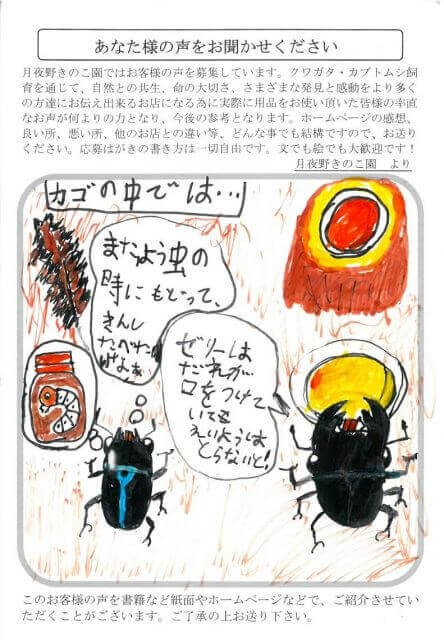 あなた様の声をお聞かせください
月夜野きのこ園ではお客様の声を募集しています。クワガタ・カブトムシ飼
育を通じて、自然との共生、命の大切さ、さまざまな発見と感動をより多く
の方達にお伝え出来るお店になる為に実際に用品をお使い頂いた皆様の率直
なお声が何よりの力となり、今後の参考となります。ホームページの感想、
良い所、悪い所、他のお店との違い等、どんな事でも結構ですので、お送り
ください。応募はがきの書き方は一切自由です。文でも絵でも大歓迎です！
月夜野きのこ園　より
カゴの中では…
またよう虫の
時にもどって、
きんし
たべた
ゼリーは
だれが
口をつけて
いても
えいようは
とらないと!
このお客様の声を書籍など紙面やホームページなどで、ご紹介させてい
ただくことがございます。ご了承の上お送り下さい。